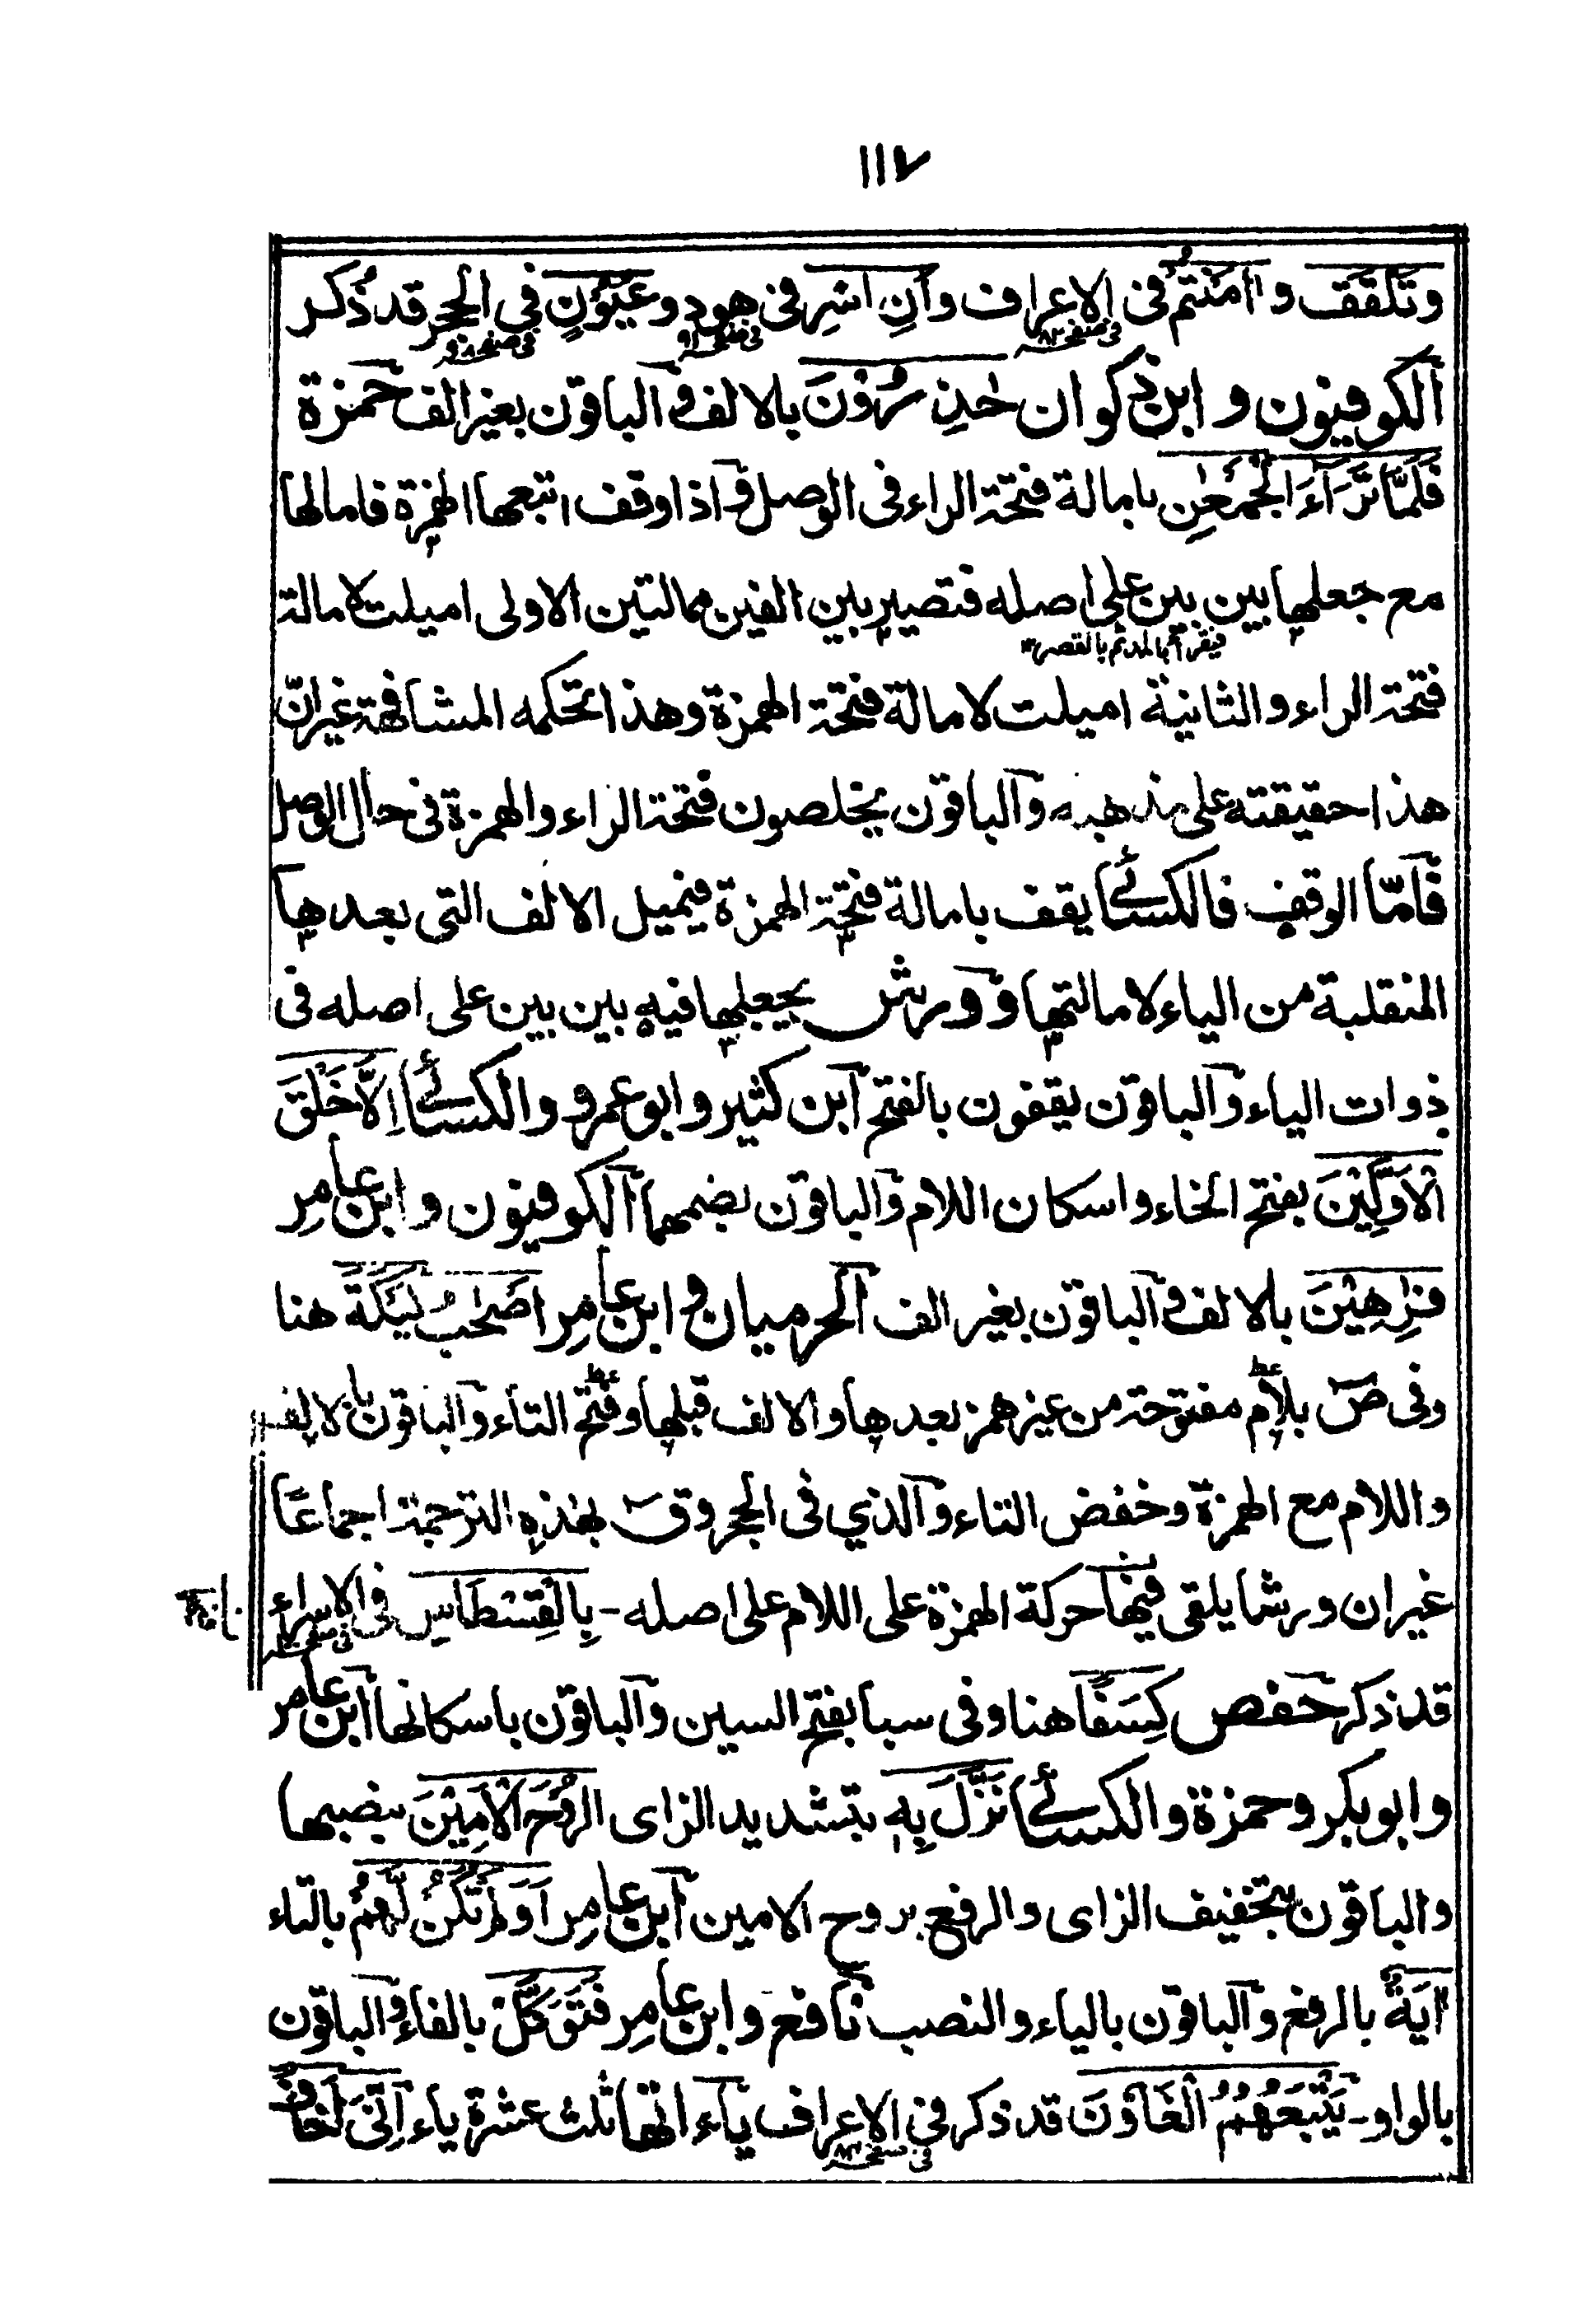 ١١٧
وتلقف و اٰمَنْتُمْ فى الاعراف وأنِ اسْرِ فى هود وعُيُوْنٍ في الحجر قد ذُكر
فى صفحه ٨٢
فى صفحه ٩١
الكوفيون وابن ذكوان حٰذِرُوْنَ بالالف والباقون بغير الف حمزة
فَلَمَّا تَرَآءَ الْجَمْعٰنِ بامالة فتحة الراء فى الوصل واذا وقف اتبعها الهمزة فامالها
مع جعلها بين بين على اصله فتصير بين الفين ممالتين الاولى اميلت لامالة
فيقرأ بالمد ثم بالقصر ١٢
فتحة الراء والثانية اميلت لامالة فتحة الهمزة وهذا تحكمه المشافهة غير انّ
هذا حقيقته على مذهبه والباقون يخلصون فتحة الراء والهمزة فى حال الوصل
فامّا الوقف فالكسائي يقف بامالة فتحة الهمزة فيميل الالف التى بعدها
المنقلبة من الياء لامالتها وورش يجعلها فيه بين بين على اصله فى
ذوات الياء والباقون يقفون بالفتح ابن كثير وابو عمرو والكسائي اِلَّا خَلْقُ
الْاَوَّلِيْنَ بفتح الخاء واسكان اللام والباقون بضمهما الكوفيون وابن عامِر
فٰرِهِيْنَ بالالف والباقون بغير الف الحرميان وابن عامِر اَصْحٰبُ لَيْكَةَ هنا
وفى صٓ بلام مفتوحة من غير همز بعدها والالف قبلها وفتح التاء والباقون بالالف
واللام مع الهمزة وخفض التاء والذي فى الحجر وقٓ بهٰذِهِ الترجمة اجماعًا
غير ان ورشا يلقى فيها حركة الهمزة على اللام على اصله - بِالْقِسْطَاسِ فى الاسراء
قد ذكر حفص كِسَفًا هنا وفى سبا بفتح السين والباقون باسكانها ابن عامر
وابو بكر وحمزة والكسائي نَزَّلَ بِهِ بتشديد الزاى الرُّوْحَ الْاَمِيْنَ بنصبهما
والباقون بتخفيف الزاى والرفع بروح الامين ابن عامِر اَوَلَمْ تَكُنْ لَّهُمْ بالتاء
اٰيَةٌ بالرفع والباقون بالياء والنصب نافع وابن عامِر فَتَوَكَّلْ بالفاء والباقون
بالواو - يَتْبَعُهُمُ الْغَاوٗنَ قد ذكر فى الاعراف ياءاتها ثلث عشرة ياء اِنِّىْ اَخَافُ
فى صفحه ٨٣